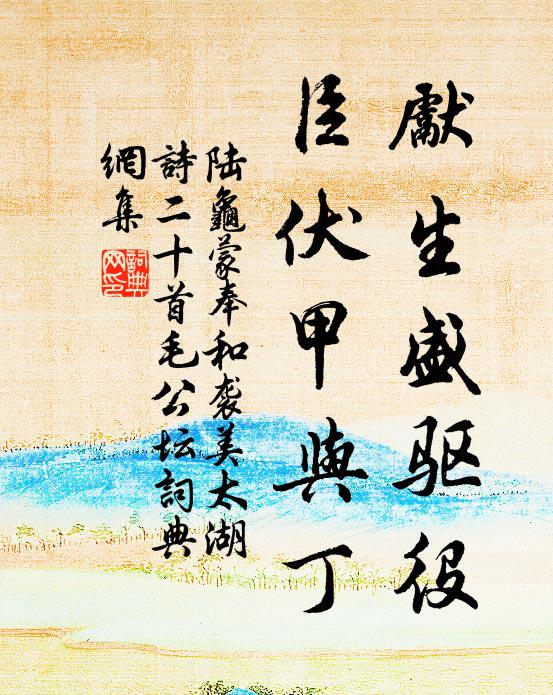 獻生盛驱役
臣伏甲與丁
陆龜蒙奉和袭美太湖
詩二十首毛公坛詞典
網集
詞典
网印